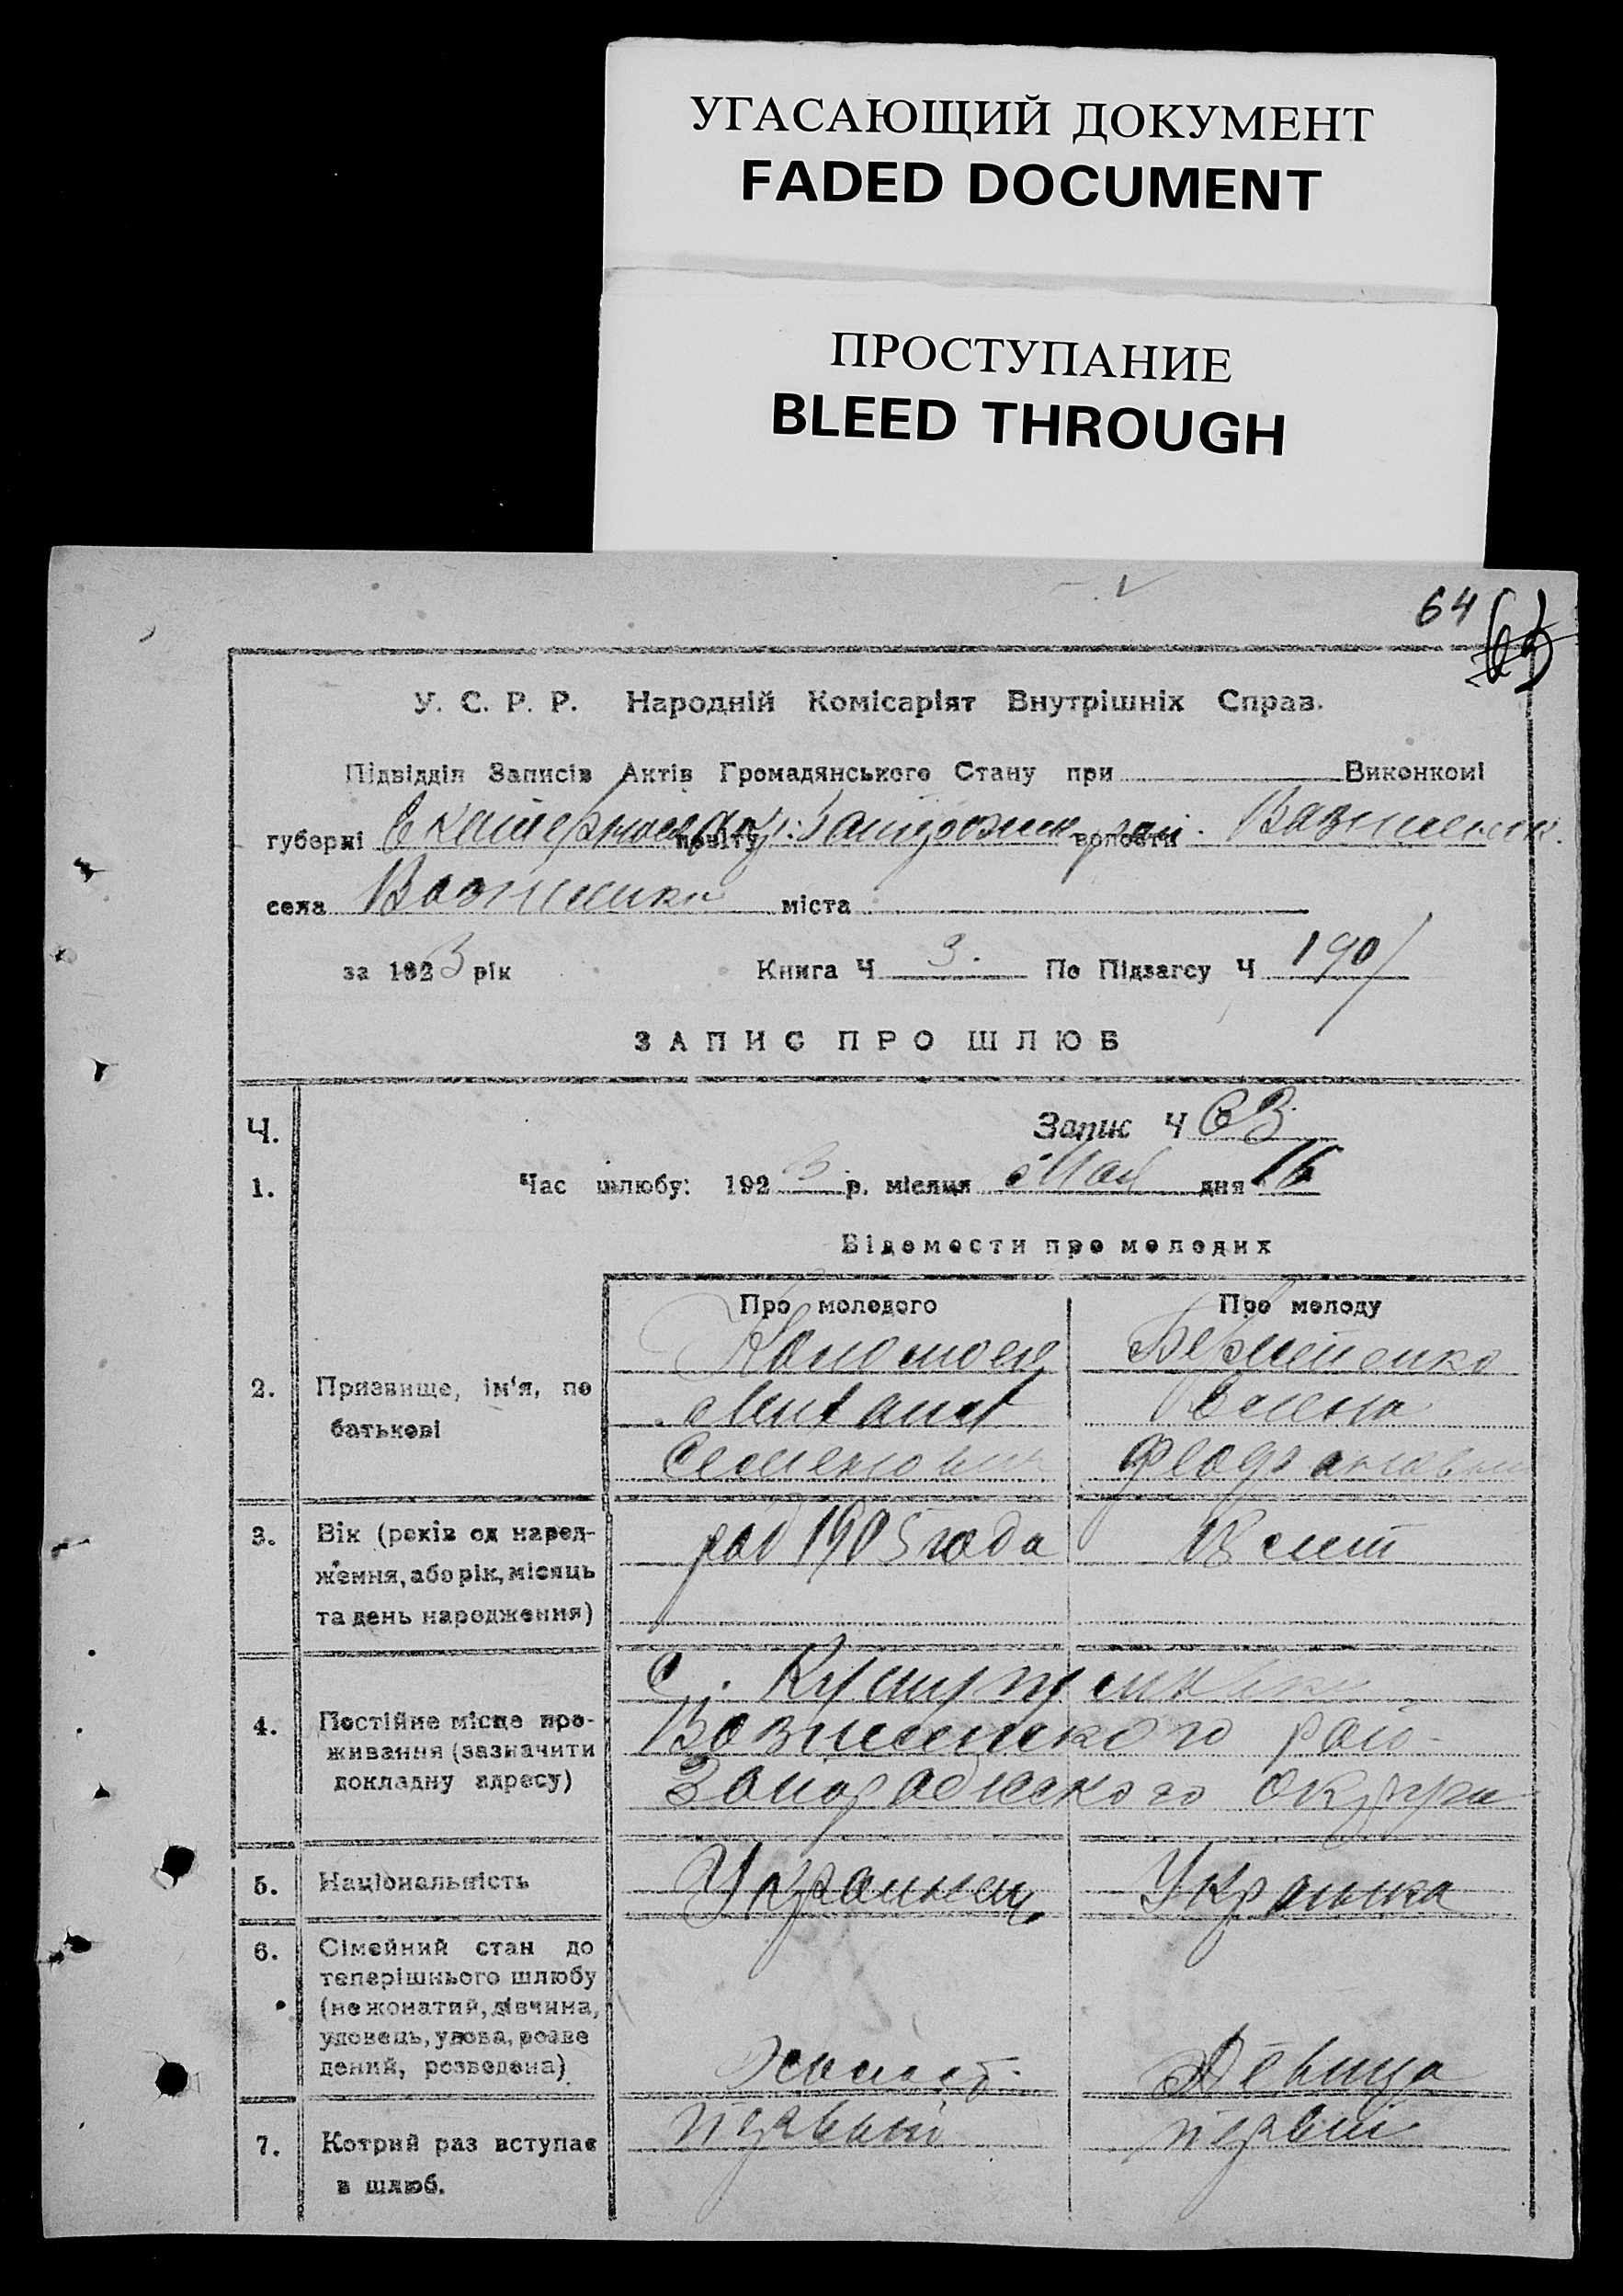 УГАСАЮЩИЙ ДОКУМЕНТ
FADED DOCUMENT
ПРОСТУПАНИЕ
BLEED THROUGH
64
У. С. Р. Р. Народній Комісаріят Внутрішніх Справ.
Підвідділ Записів Актів Громадянського Стану при Виконкомі
губерні повіту волости
села міста
за 1923 рік Книга Ч 3. По Підзагсу Ч 190
ЗАПИС ПРО ШЛЮБ
Ч. Запис Ч 63
1. Час шлюбу: 1923 р. місяця Мая дня 16
Відомости про молодих
Про молодого Про молоду
Коломоец
2. Призвище, ім'я, по
батькові
Семенович
3. Вік (років од народ-
ження, або рік, місяць
та день народження)
род 1905 года 18 лет
С.
4. Постійне місце про-
живання (зазначити
докладну адресу)
Вознесенского рай-
Запорожского округа
5. Національність Украинец Украинка
6. Сімейний стан до
теперішнього шлюбу
(не жонатий, дівчина,
удовець, удова, розве
дений, розведена)
Холост. Девица
7. Котрий раз вступає
в шлюб.
первый первый